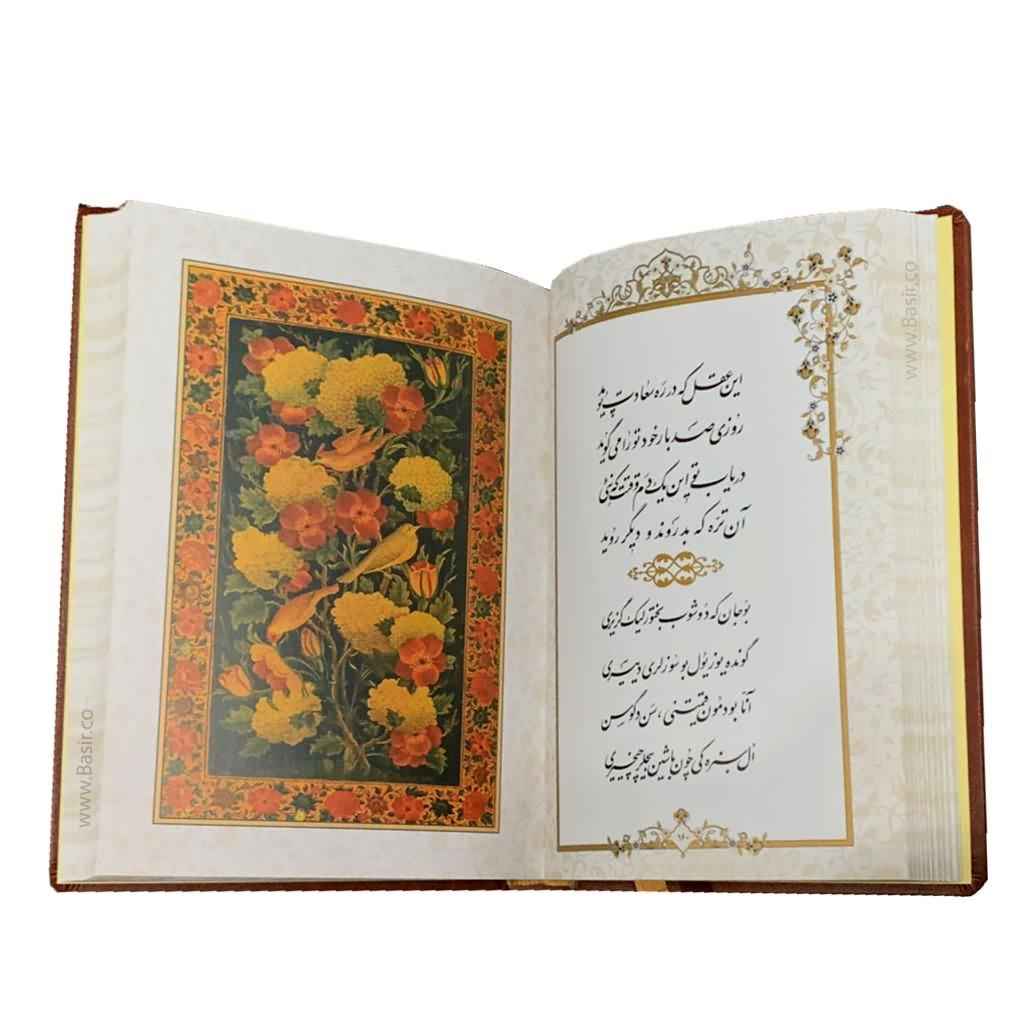 این عقل که در ره سعادت پوید
روزی صد بار خود تو را می گوید
دریاب تو این یک دم وقتت که نئی
آن تره که بدروند و دیگر روید
بو جان که دوشوب بختورلیک گزیری
گونده یوز یول بو سوزلری دییری
آنا بو دمون قیمتینی، سن دگوسن
ال سبزه کی چون باشین بیچلر
www.Basir.co
www.Basir.co